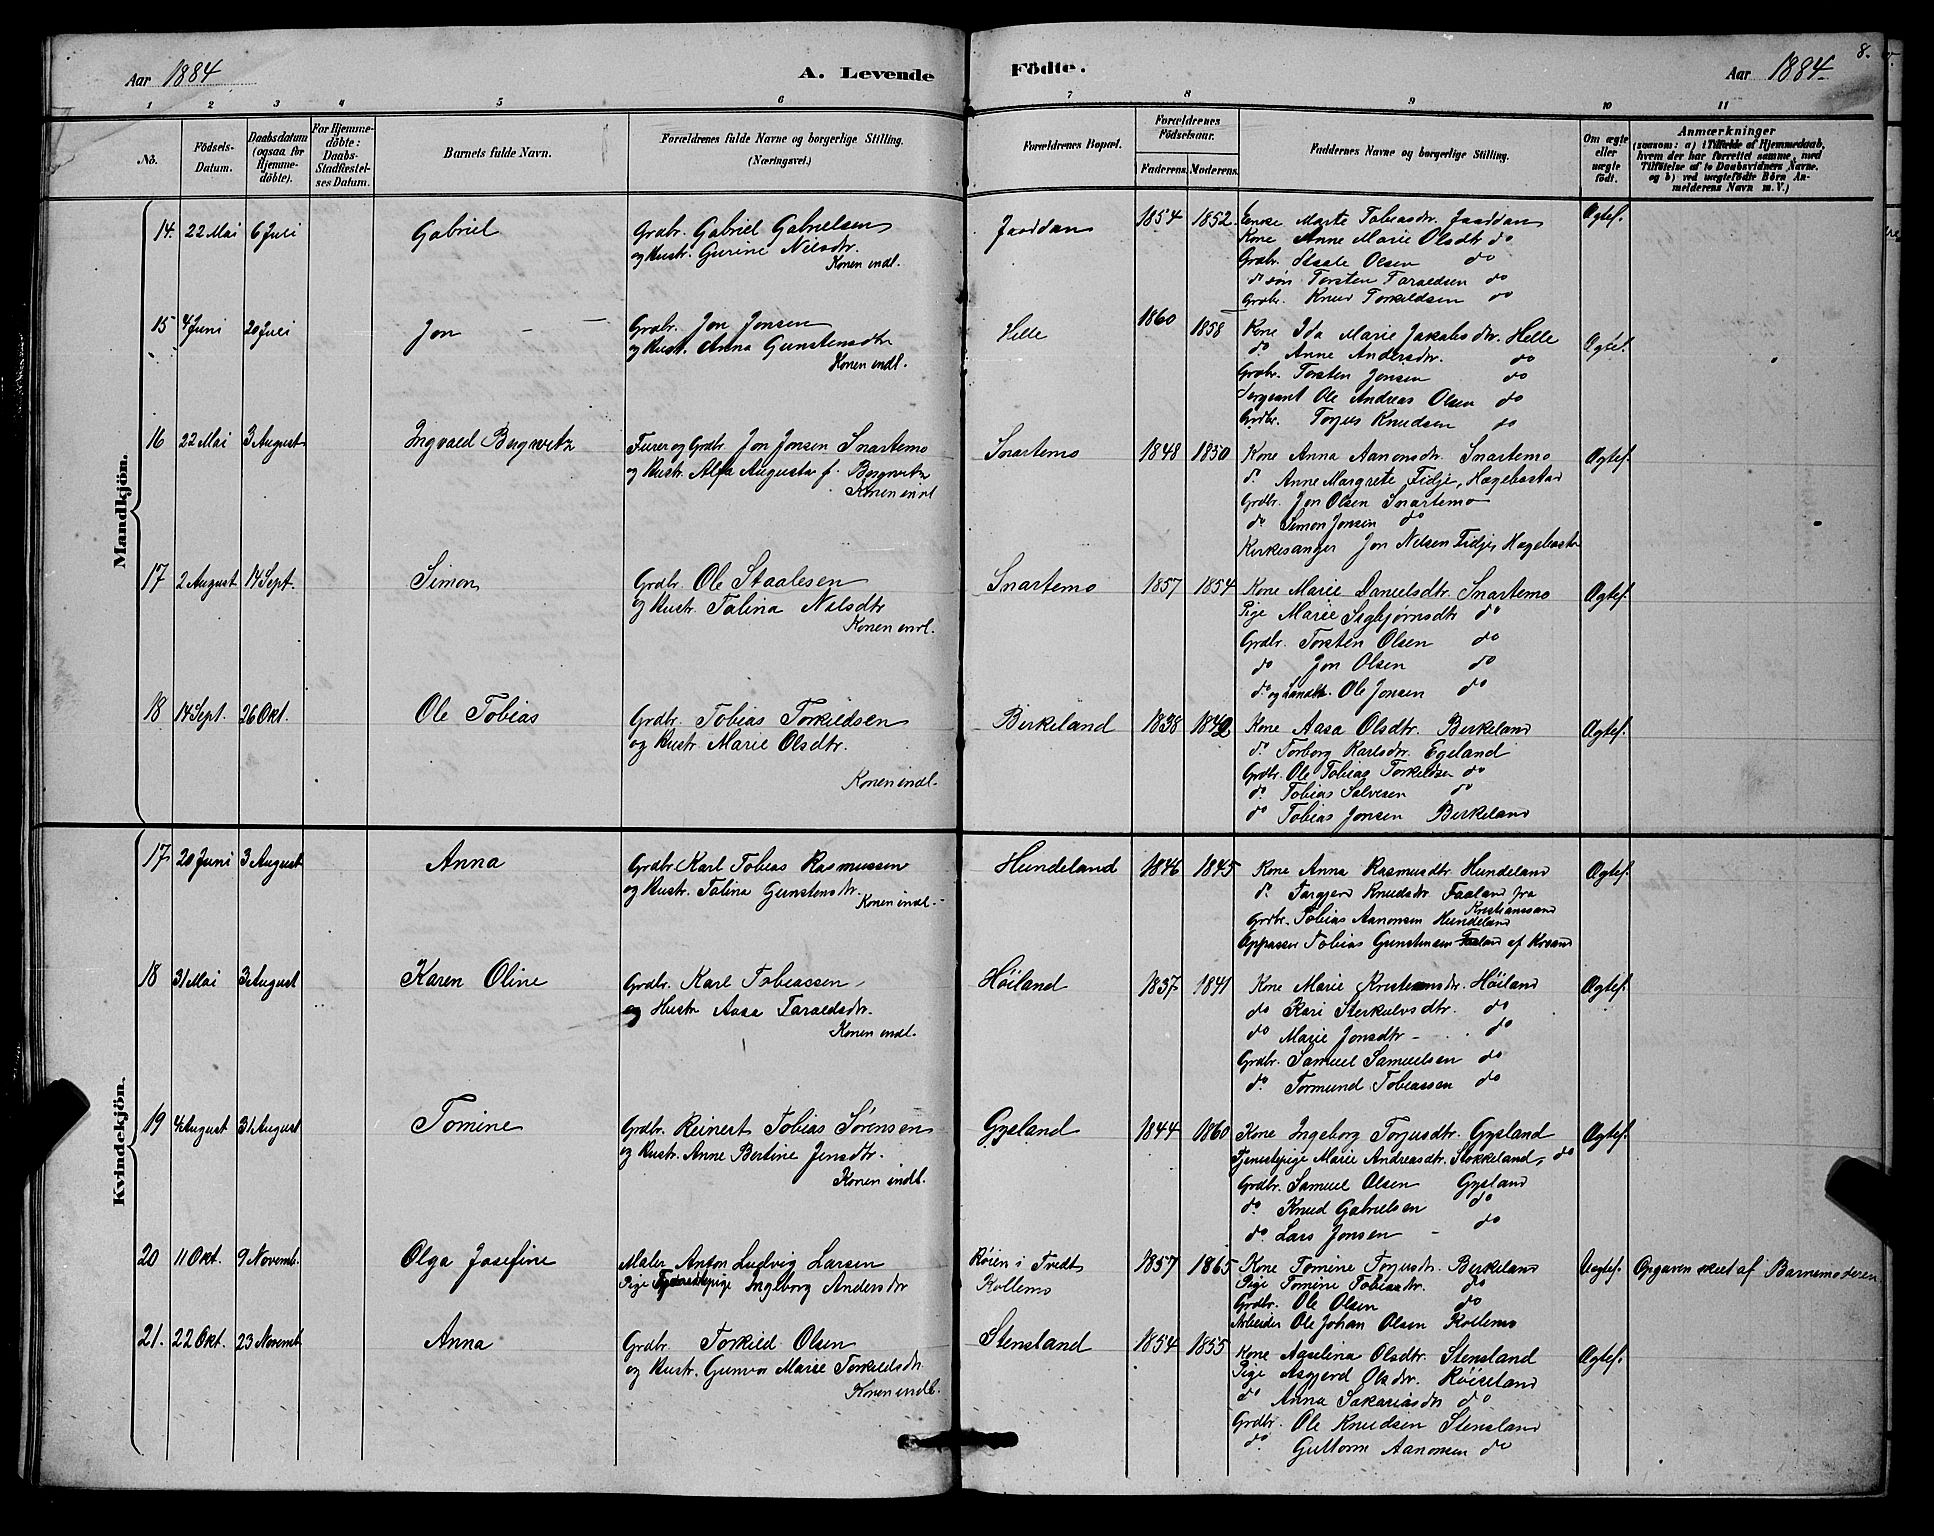 Aar 1884
A. Levende Födte.
Aar 1884
8.
1 2 3 4 5 6 7 8 9 10 11
No.
Födsels-Datum.
Daabsdatum (ogsaa for Hjemme-döbte).
For Hjemme-döbte: Daabs-Stadfæstel-ses Datum.
Barnets fulde Navn.
Forældrenes fulde Navne og borgerlige Stilling. (Næringsvei.)
Forældrenes Bopæl.
Forældrenes Födselsaar.
Faderens. Moderens.
Faddernes Navne og borgerlige Stilling.
Om ægte eller uægte födt.
Anmærkninger
(saasom: a) i Tilfælde af Hjemmedaab, hvem der har forrettet samme, med Tilföielse af to Daabsvidners Navne. og b) ved uægtefödte Börn An-melderens Navn m. V.)
Mandkjön.
14. 22 Mai 6 Juli Gabriel
Grdbr. Gabriel Gabrielsen
og Hustr. Gurine Nilsdtr.
Konen indl.
Jaaddan 1854 1852.
Enke Marte Tobiasdtr. Jaaddan
Kone Anne Marie Olsdtr do
Grdbr. Staale Olsen do
do søn Torsten Taraldsen do
Grdbr. Knud Torkildsen do
Ægtef.
15 4 Juni 20 Juli Jon
Grdbr. Jon Jonsen
og Hustr. Anna Gunstensdtr
Konen indl.
Helle 1860 1858
Kone Ida Marie Jakobsdtr. Helle
do Anne Andersdtr. do
Grdbr. Torsten Jonsen do
Sergeant Ole Andreas Olsen do
Grdbr. Torjus Knudsen do
Ægtef.
16 22 Mai 3 August Ingvald Bergwitz
Furer og Grdbr. Jon Jonsen Snartemo
og Hustr. Alfa Augusta f. Bergwitz
Konen indl
Snartemo 1848 1850
Kone Anna Aanonsdtr. Snartemo
do Anne Margrete Fidje, Hægebostad
Grdbr. Jon Olsen Snartemo
do Simon Jonsen do
Kirkesanger Jon Nilsen Fidje, Hægebostd
Ægtef.
17 2 August 14 Sept. Simon
Grdbr. Ole Staalesen
og Hustr. Talina Nilsdtr
Konen indl.
Snartemo 1857 1854
Kone Marie Danielsdtr. Snartemo
Pige Marie Sigbjørnsdtr do
Grdbr. Torsten Olsen do
do Jon Olsen do
do og Landh. Ole Jonsen do
Ægtef.
18 14 Sept. 26 Okt. Ole Tobias
Grdbr. Tobias Torkildsen
og Hustr. Marie Olsdtr.
Konen indl.
Birkeland 1838 1842
Kone Aasa Olsdtr. Birkeland
do Torborg Karlsdtr. Egeland
Grdbr. Ole Tobias Torkildsen do
do Tobias Salvesen do
do Tobias Jonsen Birkeland
Ægtef.
Kvindekjön.
17 20 Juni 3 August Anna
Grdbr. Karl Tobias Rasmussen
og Hustr. Talina Gunstensdtr.
Konen indl.
Hundeland 1846 1845
Kone Anna Rasmusdtr. Hundeland
do Targjerd Knudsdtr. Faaland fra
Kristianssand
Grdbr. Tobias Aanonsen Hundeland
Oppasser Tobias Gunstensen Faaland af Krsand
Ægtef.
18 31 Mai 3 August Karen Oline
Grdbr. Karl Tobiassen
og Hustr Aasa Taraldsdtr.
Konen indl.
Høiland 1837 1841
Kone Marie Kristensdtr. Høiland
do Kari Sterkulvsdtr. do
do Marie Jonsdtr do
Grdbr. Samuel Samuelsen do
do Tormund Tobiassen do
Ægtef.
19 4 August 31 August Tomine
Grdbr. Reinert Tobias Sørensen
og Hustr. Anne Bertine Jensdtr.
Konen indl.
Gysland 1844 1860
Kone Ingeborg Torjusdtr. Gysland
Tjenestepige Marie Andreasdtr. Stokkeland, do
Grdbr. Samuel Olsen Gysland
do Knud Gabrielsen do
do Lars Jonsen do
Ægtef.
20 11 Okt. 9 Novemb. Olga Josefine
Maler Anton Ludvig Larsen
Pige Tjenestepige Ingeborg Andersdtr
Røien i Tvedt
Kollemo
1857 1865
Kone Tomine Torjusdtr. Birkeland
Pige Tomine Tobiasdtr. do
Grdbr. Ole Olsen do
Arbeider Ole Johan Olsen Kollemo
Uægtef. Opgaven skeet af Barnemoderen
21. 22 Okt. 23 Novemb. Anna
Grdbr Torkild Olsen
og Hustr. Gunvor Marie Torkildsdtr.
Konen indl.
Stensland 1854 1855
Kone Aaselina Olsdtr. Stensland
Pige Asgjerd Olsdtr. Røiseland
do Anna Sakariasdtr do
Grdbr. Ole Knudsen Stensland
do Guttorm Aanonsen do
Ægtef.